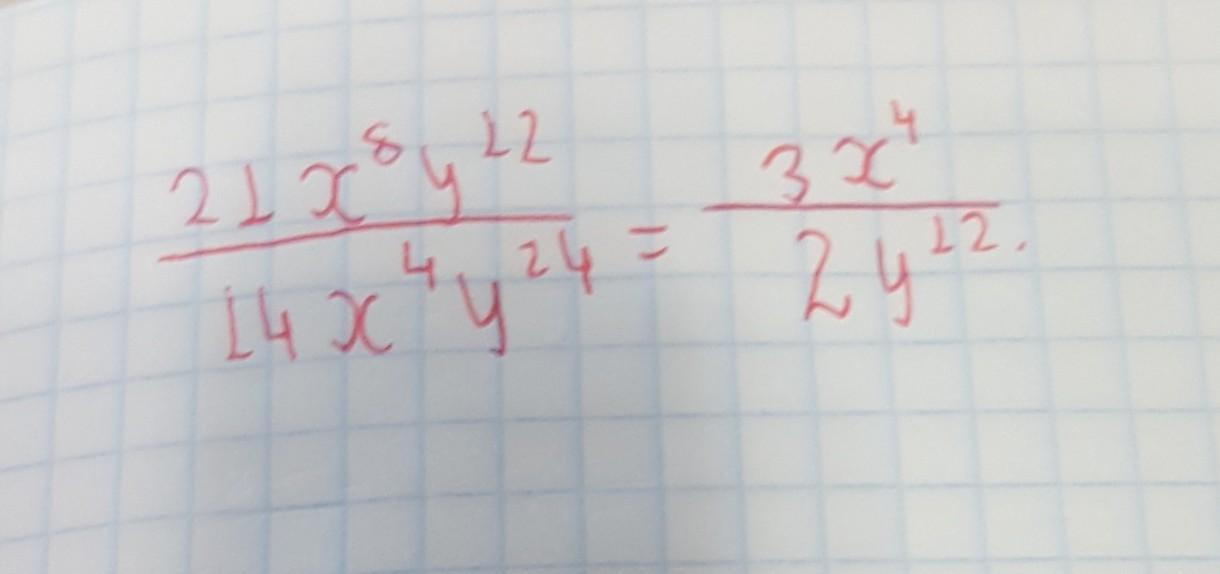 21x⁸y¹² / 14x⁴y²⁴ = 3x⁴ / 2y¹².